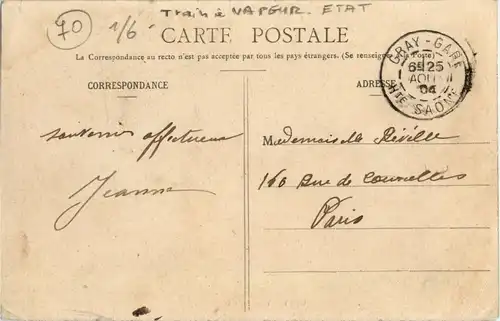 70
1/6
Train à VAPEUR. ETAT
CARTE POSTALE
La Correspondance au recto n'est pas acceptée par tous les pays étrangers. (Se renseigner à la Poste)
CORRESPONDANCE
ADRESSE
GRAY-GARE
6E 25
AOUT
04
HTE SAONE
souvenir affectueux
Jeanne
Mademoiselle Réville
160 Rue de Courcelles
Paris